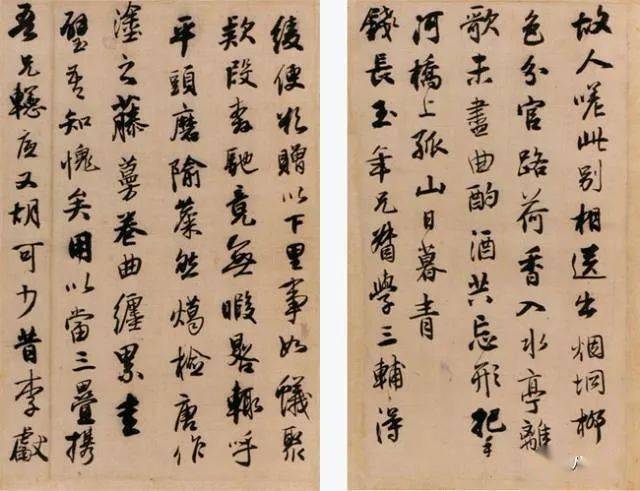 故人嗟此别相送出烟坰柳
色分官路荷香入水亭離
歌未盡曲酌酒共忘形把手
河橋上孤山日暮青
錢長玉年兄督學三輔得
綾便欲贈以下里事如蟻聚
欵段馳竟無暇晷輒呼
平頭磨隃然燭檢唐作
塗之藤蔓卷曲纏累圭
璧吾知愧矣用以當三疊携
吾兄應又胡可少昔李獻